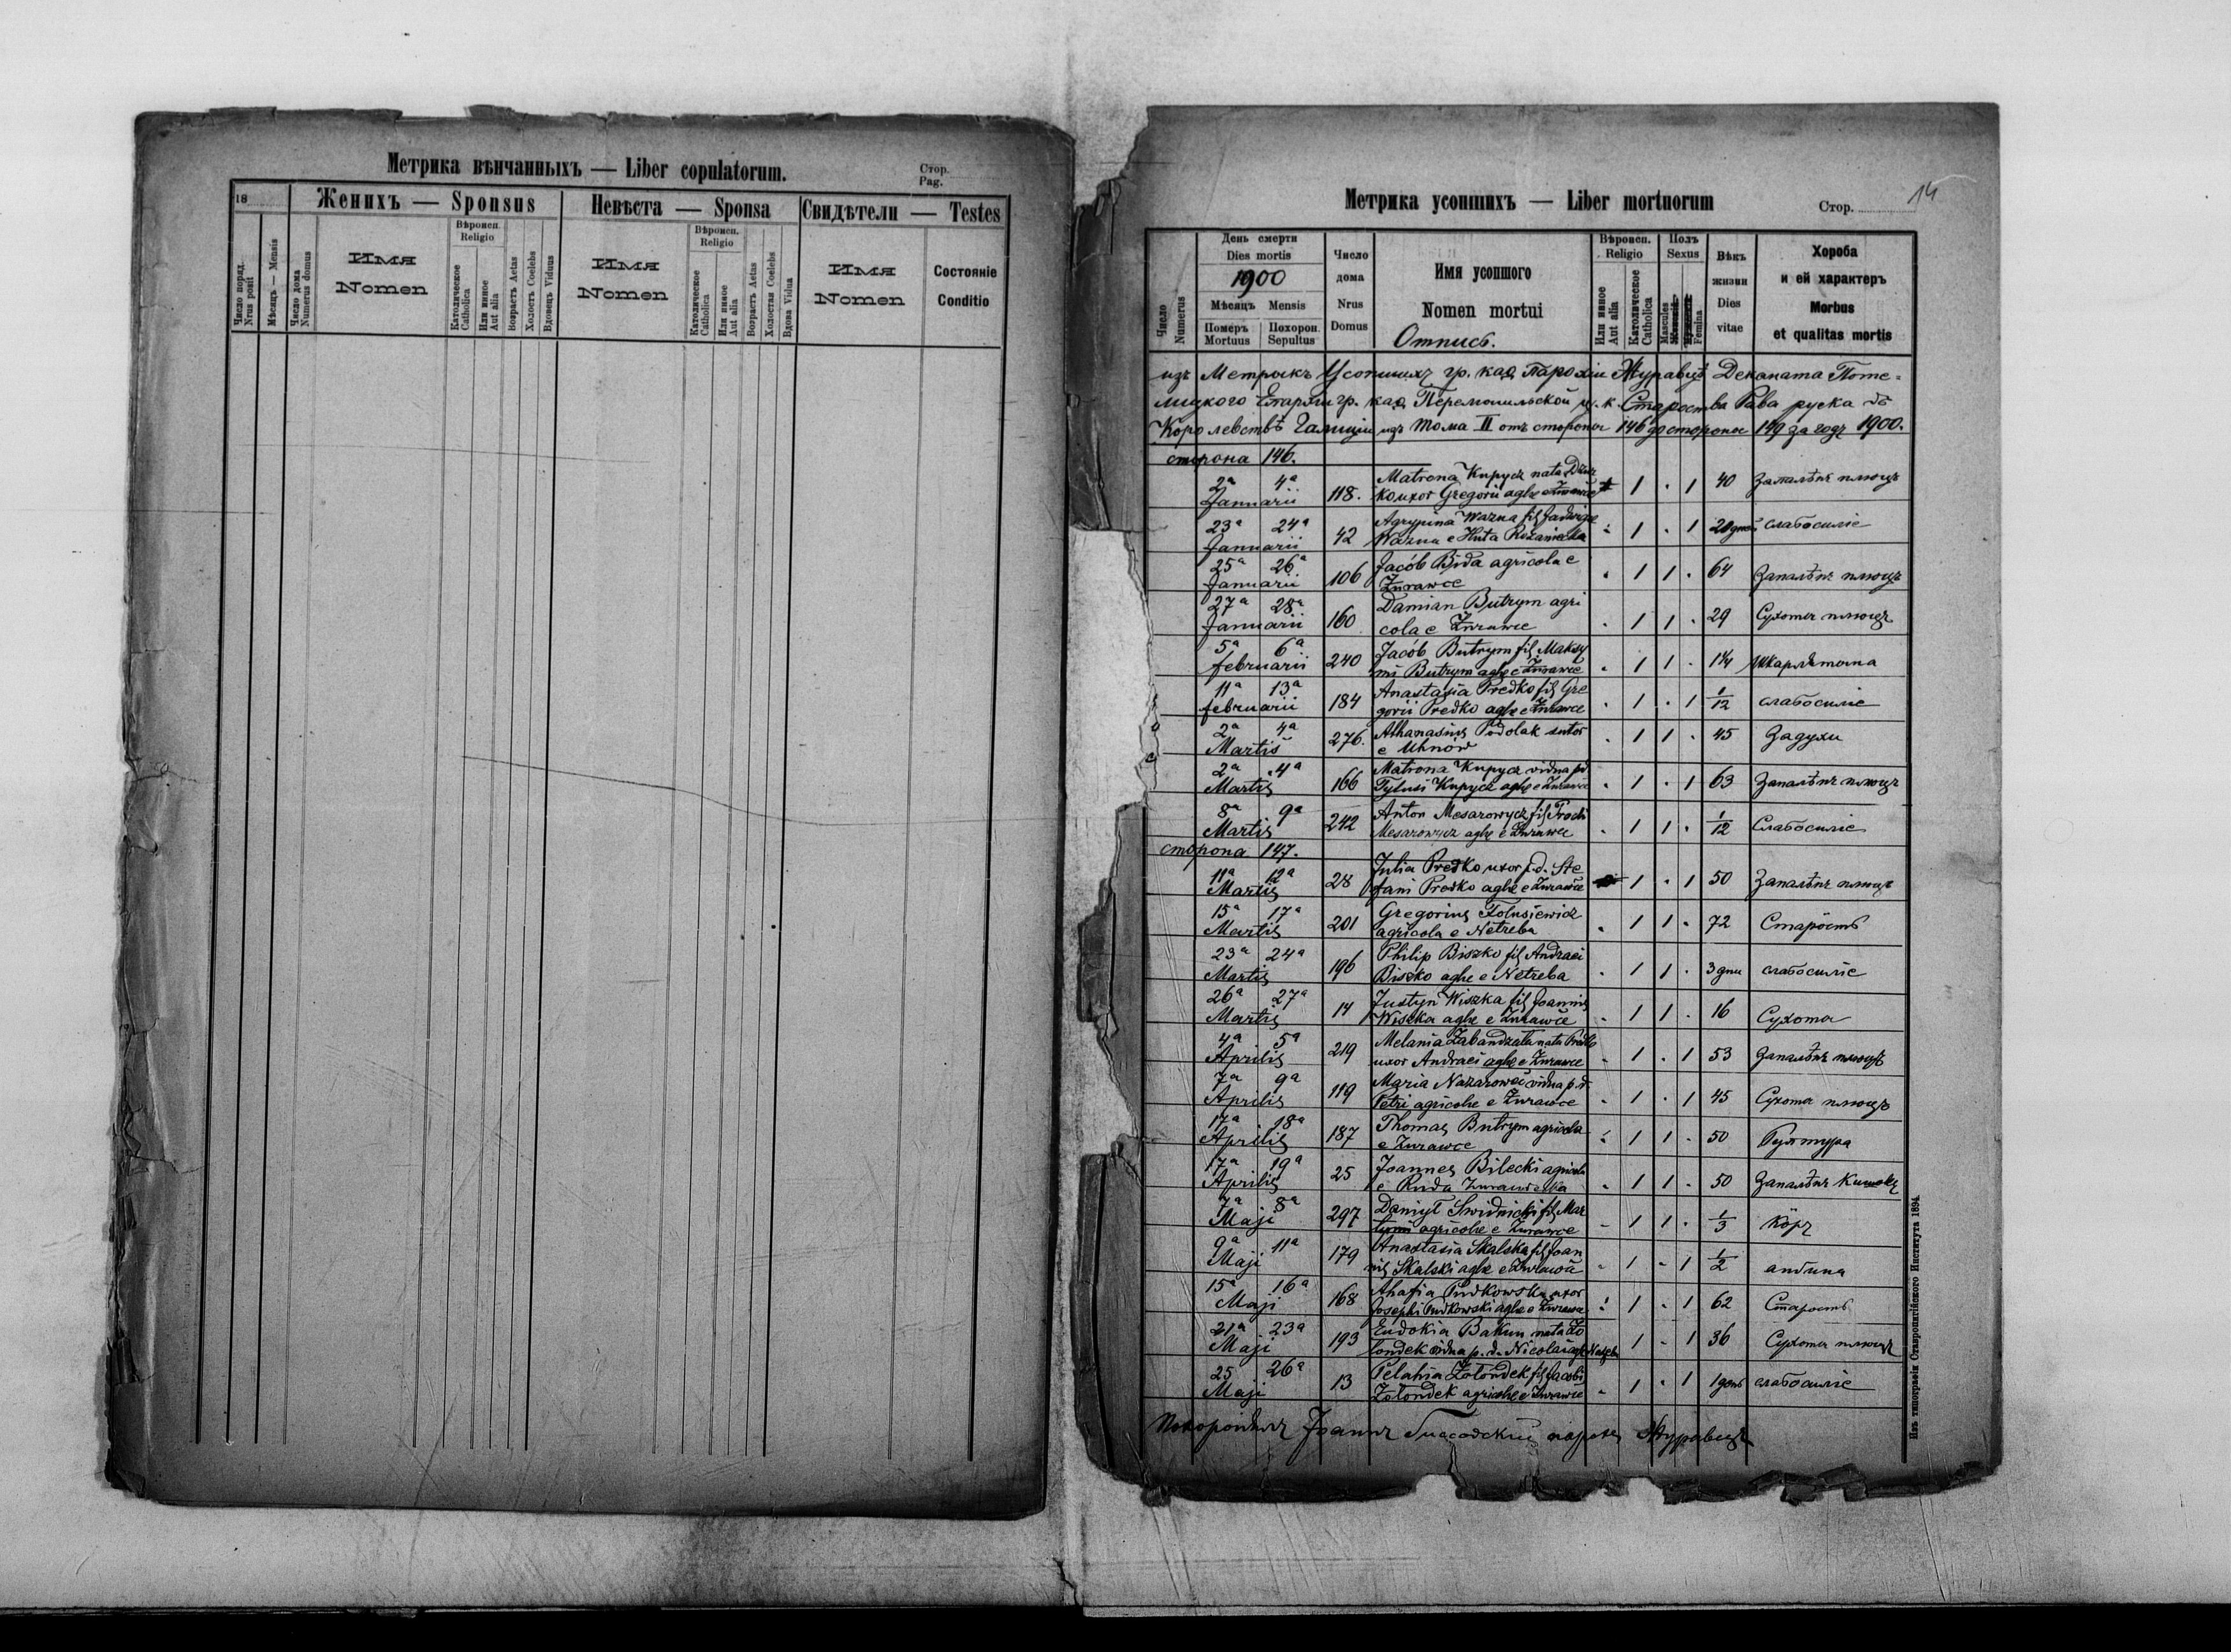 Метрика вѣнчанныхъ — Liber copulatorum.
Стор.
Pag.
18
Женихъ — Sponsus
Невѣста — Sponsa
Свидѣтели — Testes
Число поряд.
Nrus posit
Мѣсяцъ — Mensis
Число дома
Numerus domus
Имя
Nomen
Вѣроисп.
Religio
Католическое
Catholica
Или инное
Aut alia
Возрастъ Aetas
Холостъ Coelebs
Вдовецъ Viduus
Имя
Nomen
Вѣроисп.
Religio
Католическое
Catholica
Или инное
Aut alia
Возрастъ Aetas
Холостая Coelebs
Вдова Vidua
Имя
Nomen
Состояніе
Conditio
14
Метрика усопшихъ — Liber mortuorum
Стор.
Число
Numerus
День смерти
Dies mortis
1900
Мѣсяцъ Mensis
Померъ Mortuus
Похорон. Sepultus
Число
дома
Nrus
Domus
Имя усопшого
Nomen mortui
Отпись.
Вѣроисп.
Religio
Или инное
Aut alia
Католическое
Catholica
Полъ
Sexus
Mascules
Femina
Вѣкъ
жизни
Dies
vitae
Хороба
и ей характеръ
Morbus
et qualitas mortis
изъ Метрыкъ Усопшихъ гр. каѳ. Парохіи Журавцѣ Деканата Поте-
лицкого Епархіи гр. каѳ. Перемышльской ц. к. Староства Рава руска въ
Королевствѣ Галиціи изъ Тома II отъ стороны 146 до стороны 149 за годъ 1900.
сторона 146.
2a 4a Januarii 118. Matrona Kupycz nata Dzur
ko uxor Gregorii aglae e Żurawce 1 . 1 40 Запалѣнє плюцъ
23a 24a Januarii 42 Agrypina Wazna fil. Jadwigae
Wazna e Huta Rożaniecka 1 . 1 20 дней слабосиліє
25a 26a Januarii 106 Jacób Bida agricola e
Żurawce 1 1 . 64 Запалѣнє плюцъ
27a 28a Januarii 160 Damian Butrym agri
cola e Żurawce 1 1 . 29 Сухоты плюцъ
5a 6a februarii 240 Jacób Butrym fil. Maksy
mi Butrym aglae e Żurawce 1 1 . 1¼ шкарлятына
11a 13a februarii 184 Anastasia Predko fil. Gre
gorii Predko aglae e Żurawce 1 . 1 1/12 слабосиліє
2a 4a Martis 276. Athanasius Podolak sutor
e Uhnów 1 1 . 45 Задухи
2a 4a Martis 166 Matrona Kupycz vidua p.d.
Tytusi Kupycz aglae e Żurawce 1 . 1 63 Запалѣнє плюцъ
8a 9a Martis 242 Anton Mesarowycz fil. Prochi
Mesarowycz aglae e Żurawce 1 1 . 1/12 Слабосиліє
сторона 147.
11a 12a Martis 28 Julia Predko uxor p.d. Ste
fani Predko aglae e Żurawce 1 . 1 50 Запалѣнє плюцъ
15a 17a Martis 201 Gregorius Tolusiewicz
agricola e Netreba 1 1 . 72 Старôсть
23a 24a Martis 196 Philip Biszko fil. Andraei
Biszko aglae e Netreba 1 1 . 3 дни слабосиліє
26a 27a Martis 14 Justyn Wiszka fil. Joannis
Wiszka aglae e Żurawce 1 1 . 16 Сухоты
4a 5a Aprilis 219 Melania Zabandzała nata Predko
uxor Andraei aglae e Żurawce 1 . 1 53 Запалѣнє плюцъ
7a 9a Aprilis 119 Maria Nazarowec vidua p.d.
Petri agricolae e Żurawce 1 . 1 45 Сухоты плюцъ
17a 18a Aprilis 187 Thomas Butrym agricola
e Żurawce 1 1 . 50 Руптура
17a 19a Aprilis 25 Joannes Bilecki agricola
e Ruda Żurawecka 1 1 . 50 Запалѣнє Кишокъ
7a 8a Maji 297 Danyił Swidnicki fil. Mar
tyni agricolae e Żurawce 1 1 . 1/3 Кôръ
9a 11a Maji 179 Anastasia Skalska fil. Joan
nis Skalski aglae e Żurawce 1 . 1 1/2 ангина
15a 16a Maji 168 Ahafia Pudkowska uxor
Josephi Pudkowski aglae e Żurawce 1 . 1 62 Старость
21a 23a Maji 193 Eudokia Bakun nata Żo
łondek vidua p.d. Nicolai agr. Netreba 1 . 1 36 Сухоты плюцъ
25 26a Maji 13 Pelahia Żołondek fil. Jacobi
Żołondek agricolae e Żurawce 1 . 1 1 день слабосиліє
Похоронилъ Іоаннъ парохъ Журавцѣ
Изъ типографіи Ставропигійского Института 1894.